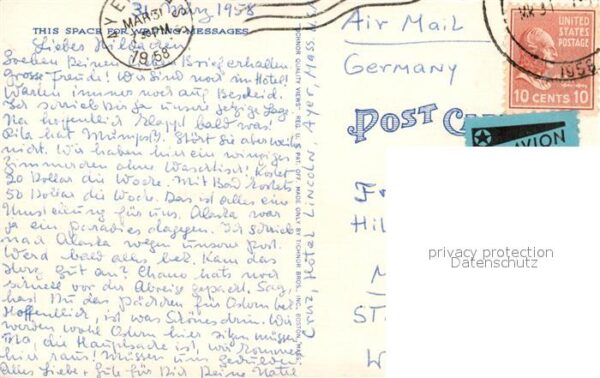 31. März 1958
AYER
MAR 31
PM
1958
THIS SPACE FOR WRITING MESSAGES
Liebes Hildachen
Soeben Deinen Brief erhalten.
Grosse Freude! Wir sind noch im Hotel!
Warten immer noch auf Bescheid.
Ich schrieb Dir ja unsere jetzige Lage.
Na hoffentlich klappt bald was!
Rita hat Mumps. Stört sie aber weiter
nicht. Wir haben hier ein winziges
Zimmerchen ohne Waschtisch! Kostet
20 Dollar die Woche. Mit Bad kostets
50 Dollar die Woche. Das ist alles eine
Umstellung für uns. Alaska war
ja ein Paradies dagegen. Ich schrieb
nach Alaska wegen unserer Post.
Wird bald alles bei. Kam das
Herz gut an? Chano hats noch
schnell vor der Abreise gepackt. Sag,
hast Du das Päckchen für Ostern bek.
Hoffentlich, ist was Schönes drin. Wir
werden wohl Ostern hier sitzen müssen
Na, die Hauptsache ist, wir kommen
hier raus! Müssen uns gedulden
Alles Liebe + Gute für Dich Deine
TICHNOR QUALITY VIEWS REG. U. S. PAT. OFF. MADE ONLY BY TICHNOR BROS., INC., BOSTON, MASS.
Cruz, Hotel Lincoln, Ayer, Mass
Air Mail
Germany
POST CA
UNITED STATES
POSTAGE
10 CENTS 10
1958
AVION
F
Hil
M
ST
W
privacy protection
Datenschutz